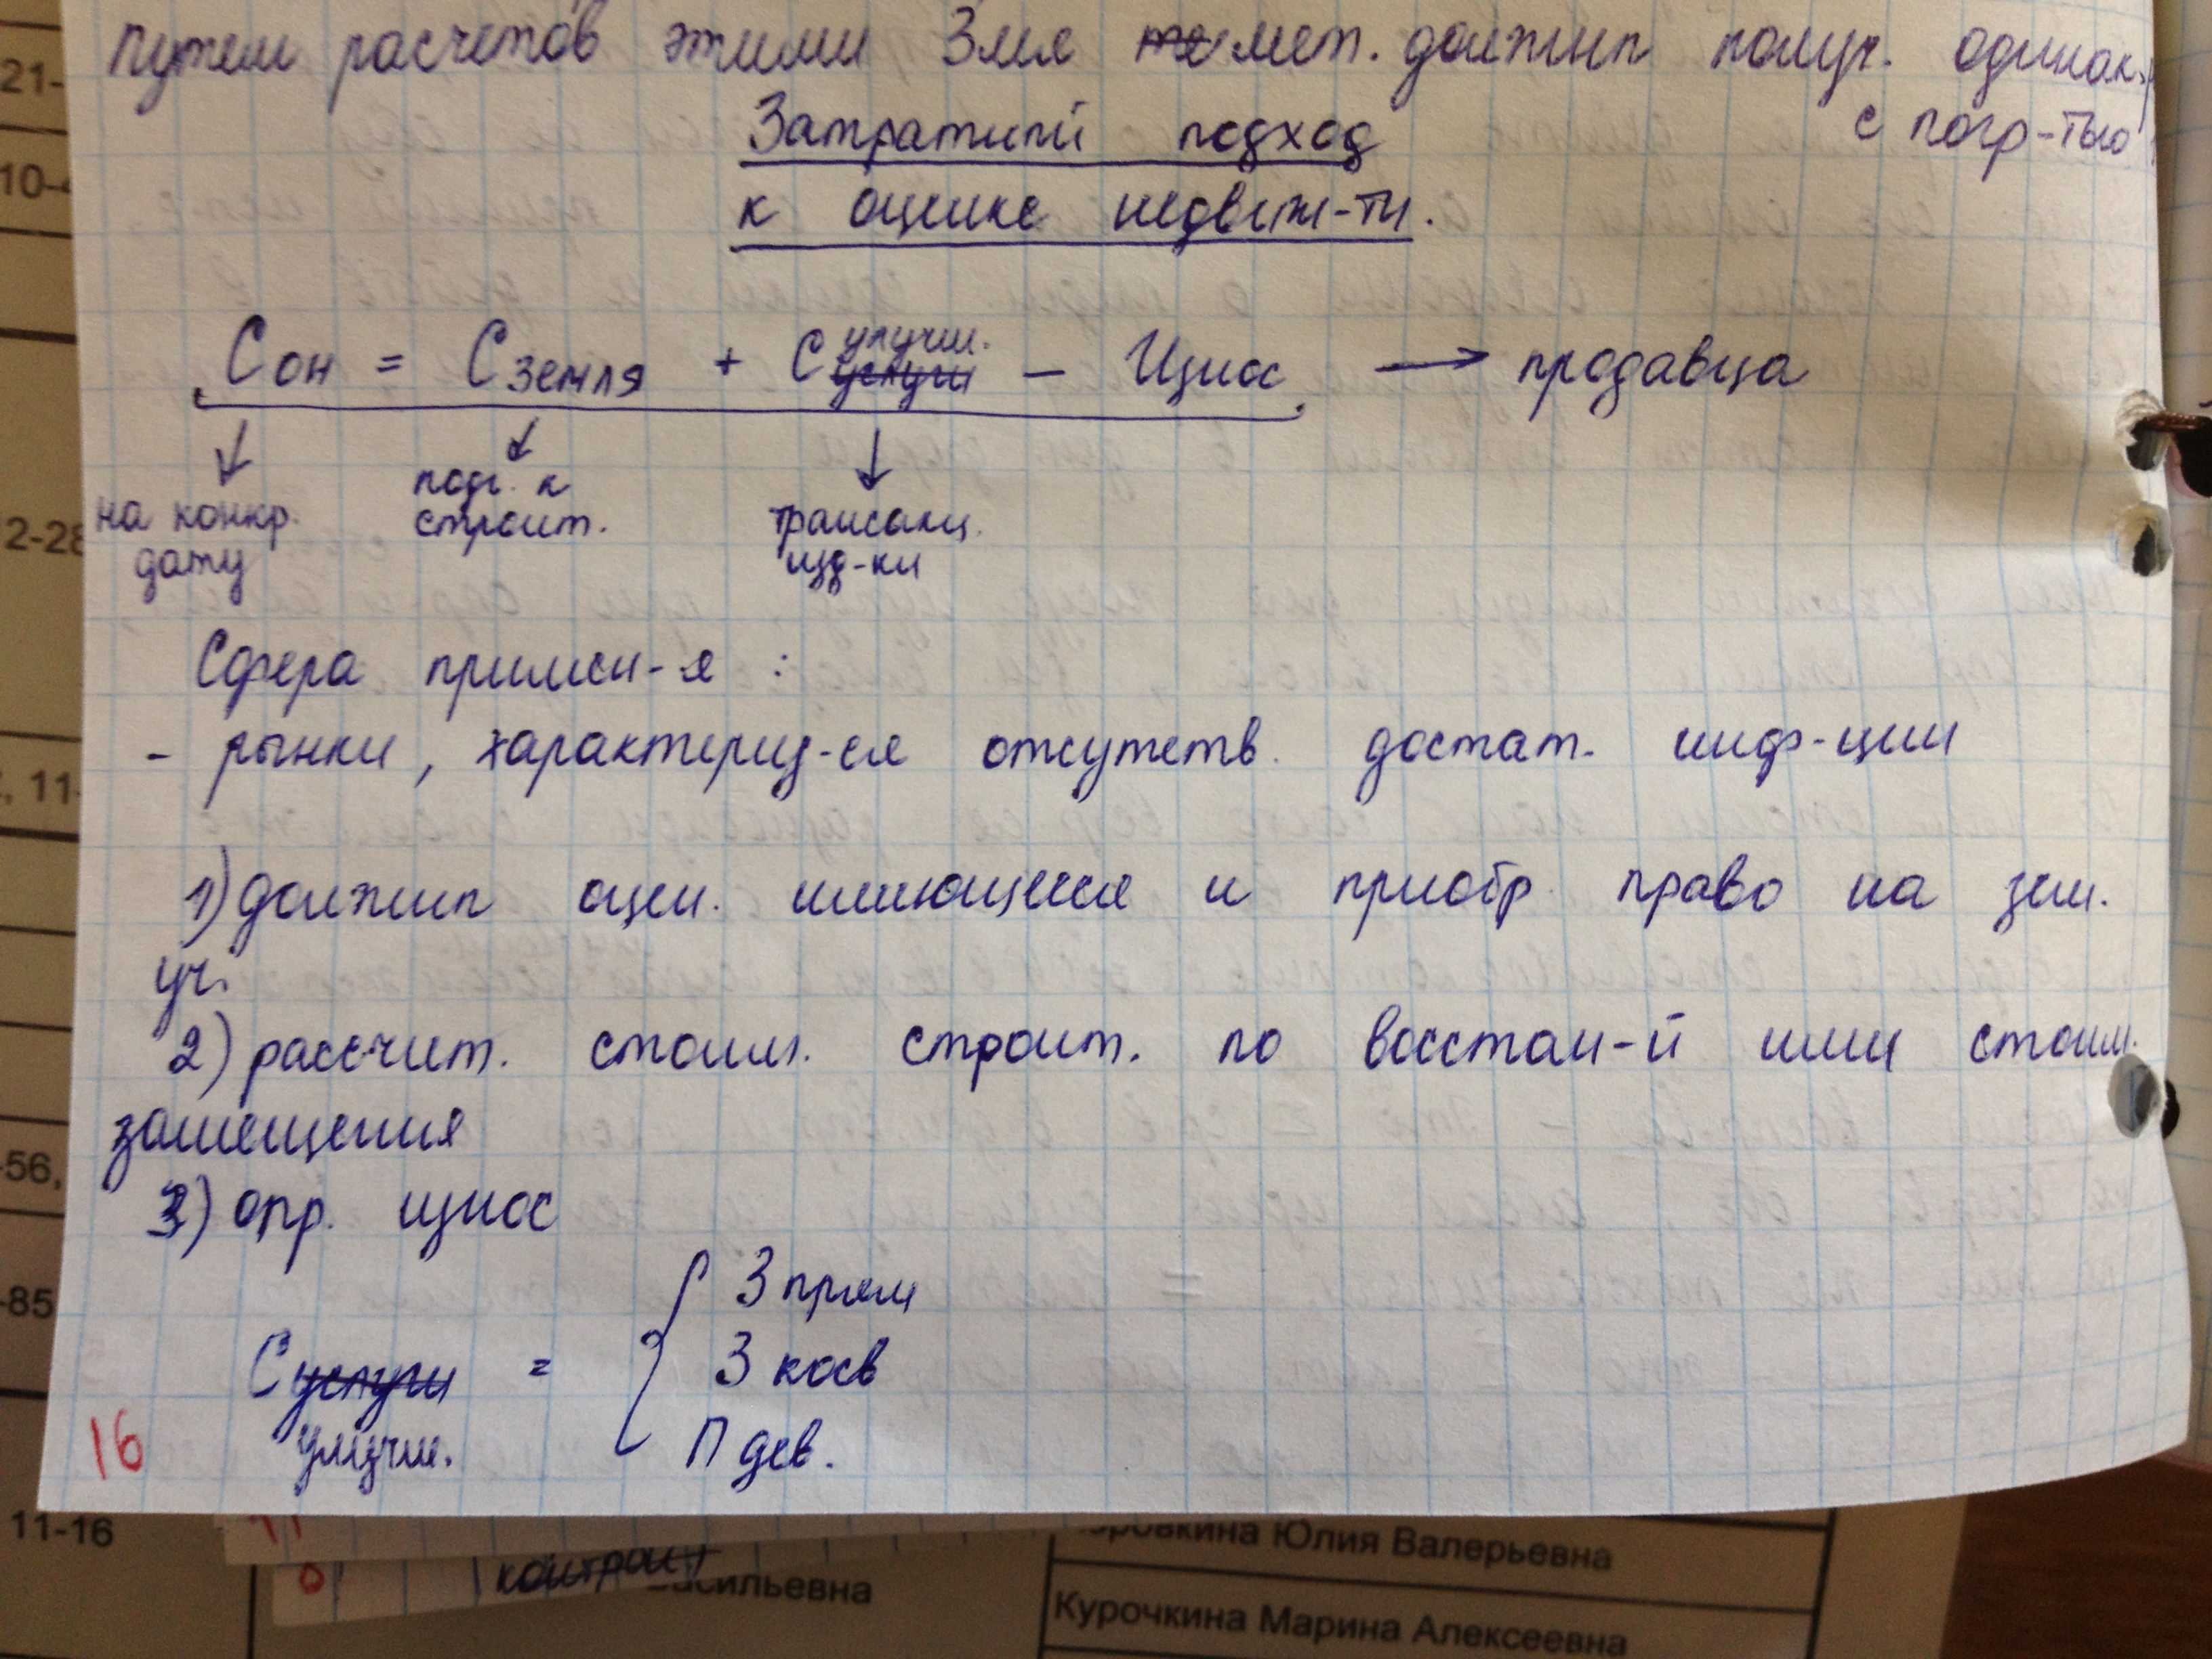 путем расчетов этими 3мя ~~те~~ мет. должны получ. одинак.,
с погр-тью
Затратный подход
к оценке недвиж-ти.
Сон = Сземля + С ~~услуги~~ улучш. – Износ → продавца
на конкр. дату
подг. к строит.
трансакц. изд-ки
Сфера примен-я :
- рынки, характериз-ся отсутств. достат. инф-ции
1) должны оцен. имеющееся и приобр. право на зем.
уч.
2) рассчит. стоим. строит. по восстан-й или стоим.
замещения
3) опр. износ
З прям
З косв
С ~~услуги~~ =
улучш.
П дев.
16
21-
10-
2-28
, 11-
-56,
-85
11-16
контрол
сильевна
ровкина Юлия Валерьевна
Курочкина Марина Алексеевна